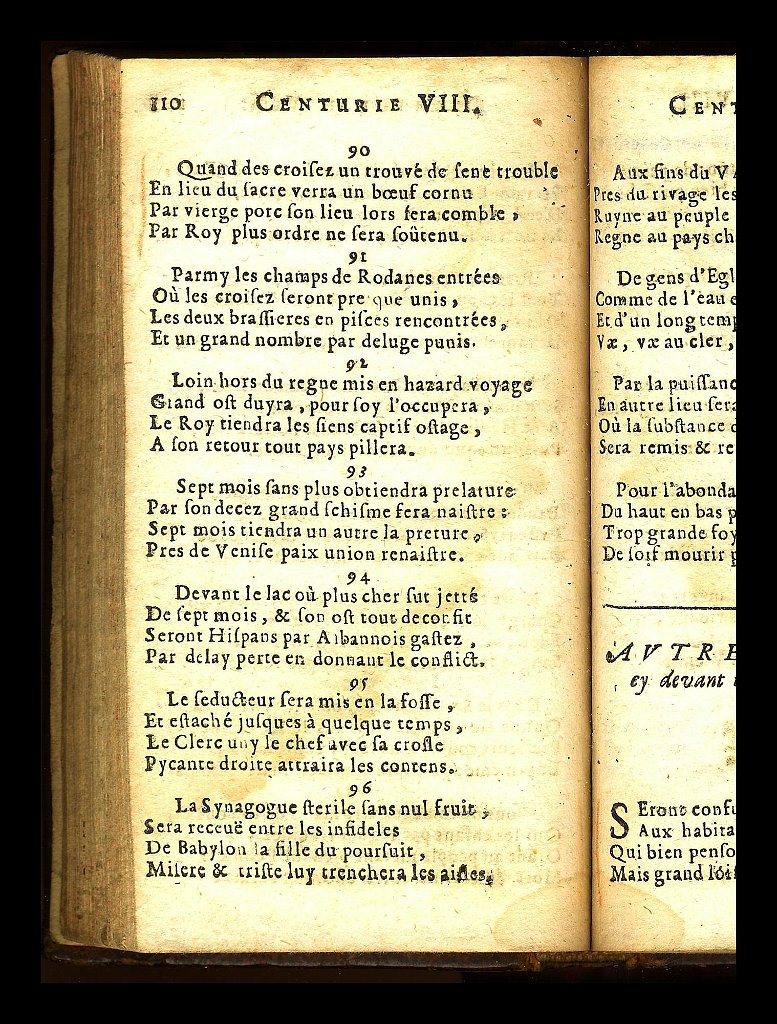 110 CENTURIE VIII.
90
Quand des croiſez un trouvé de ſene trouble
En lieu du ſacre verra un bœuf cornu
Par vierge porc ſon lieu lors ſera comble,
Par Roy plus ordre ne ſera ſoûtenu.
91
Parmy les champs de Rodanes entrées
Où les croiſez ſeront pre que unis,
Les deux braſſieres en piſces rencontrées,
Et un grand nombre par deluge punis.
92
Loin hors du regne mis en hazard voyage
Grand oſt duyra, pour ſoy l'occupera,
Le Roy tiendra les ſiens captif oſtage,
A ſon retour tout pays pillera.
93
Sept mois ſans plus obtiendra prelature
Par ſon decez grand ſchiſme fera naiſtre:
Sept mois tiendra un autre la preture,
Pres de Veniſe paix union renaiſtre.
94
Devant le lac où plus cher fut jetté
De ſept mois, & ſon oſt tout deconfit
Seront Hiſpans par Albannois gaſtez,
Par delay perte en donnant le conflict.
95
Le ſeducteur ſera mis en la foſſe,
Et eſtaché juſques à quelque temps,
Le Clerc uny le chef avec ſa croſſe
Pycante droite attraira les contens.
96
La Synagogue ſterile ſans nul fruit,
Sera receuë entre les infideles
De Babylon la fille du pourſuit,
Miſere & triſte luy trenchera les aiſles.
CENT
Aux fins du VA
Pres du rivage les
Ruyne au peuple
Regne au pays ch
De gens d'Egl
Comme de l'eau
Et d'un long temp
Væ, væ au cler,
Par la puiſſanc
En autre lieu ſera
Où la ſubſtance
Sera remis & re
Pour l'abonda
Du haut en bas p
Trop grande foy
De ſoif mourir p
AVTRE
cy devant
SEront confu
Aux habita
Qui bien penſo
Mais grand